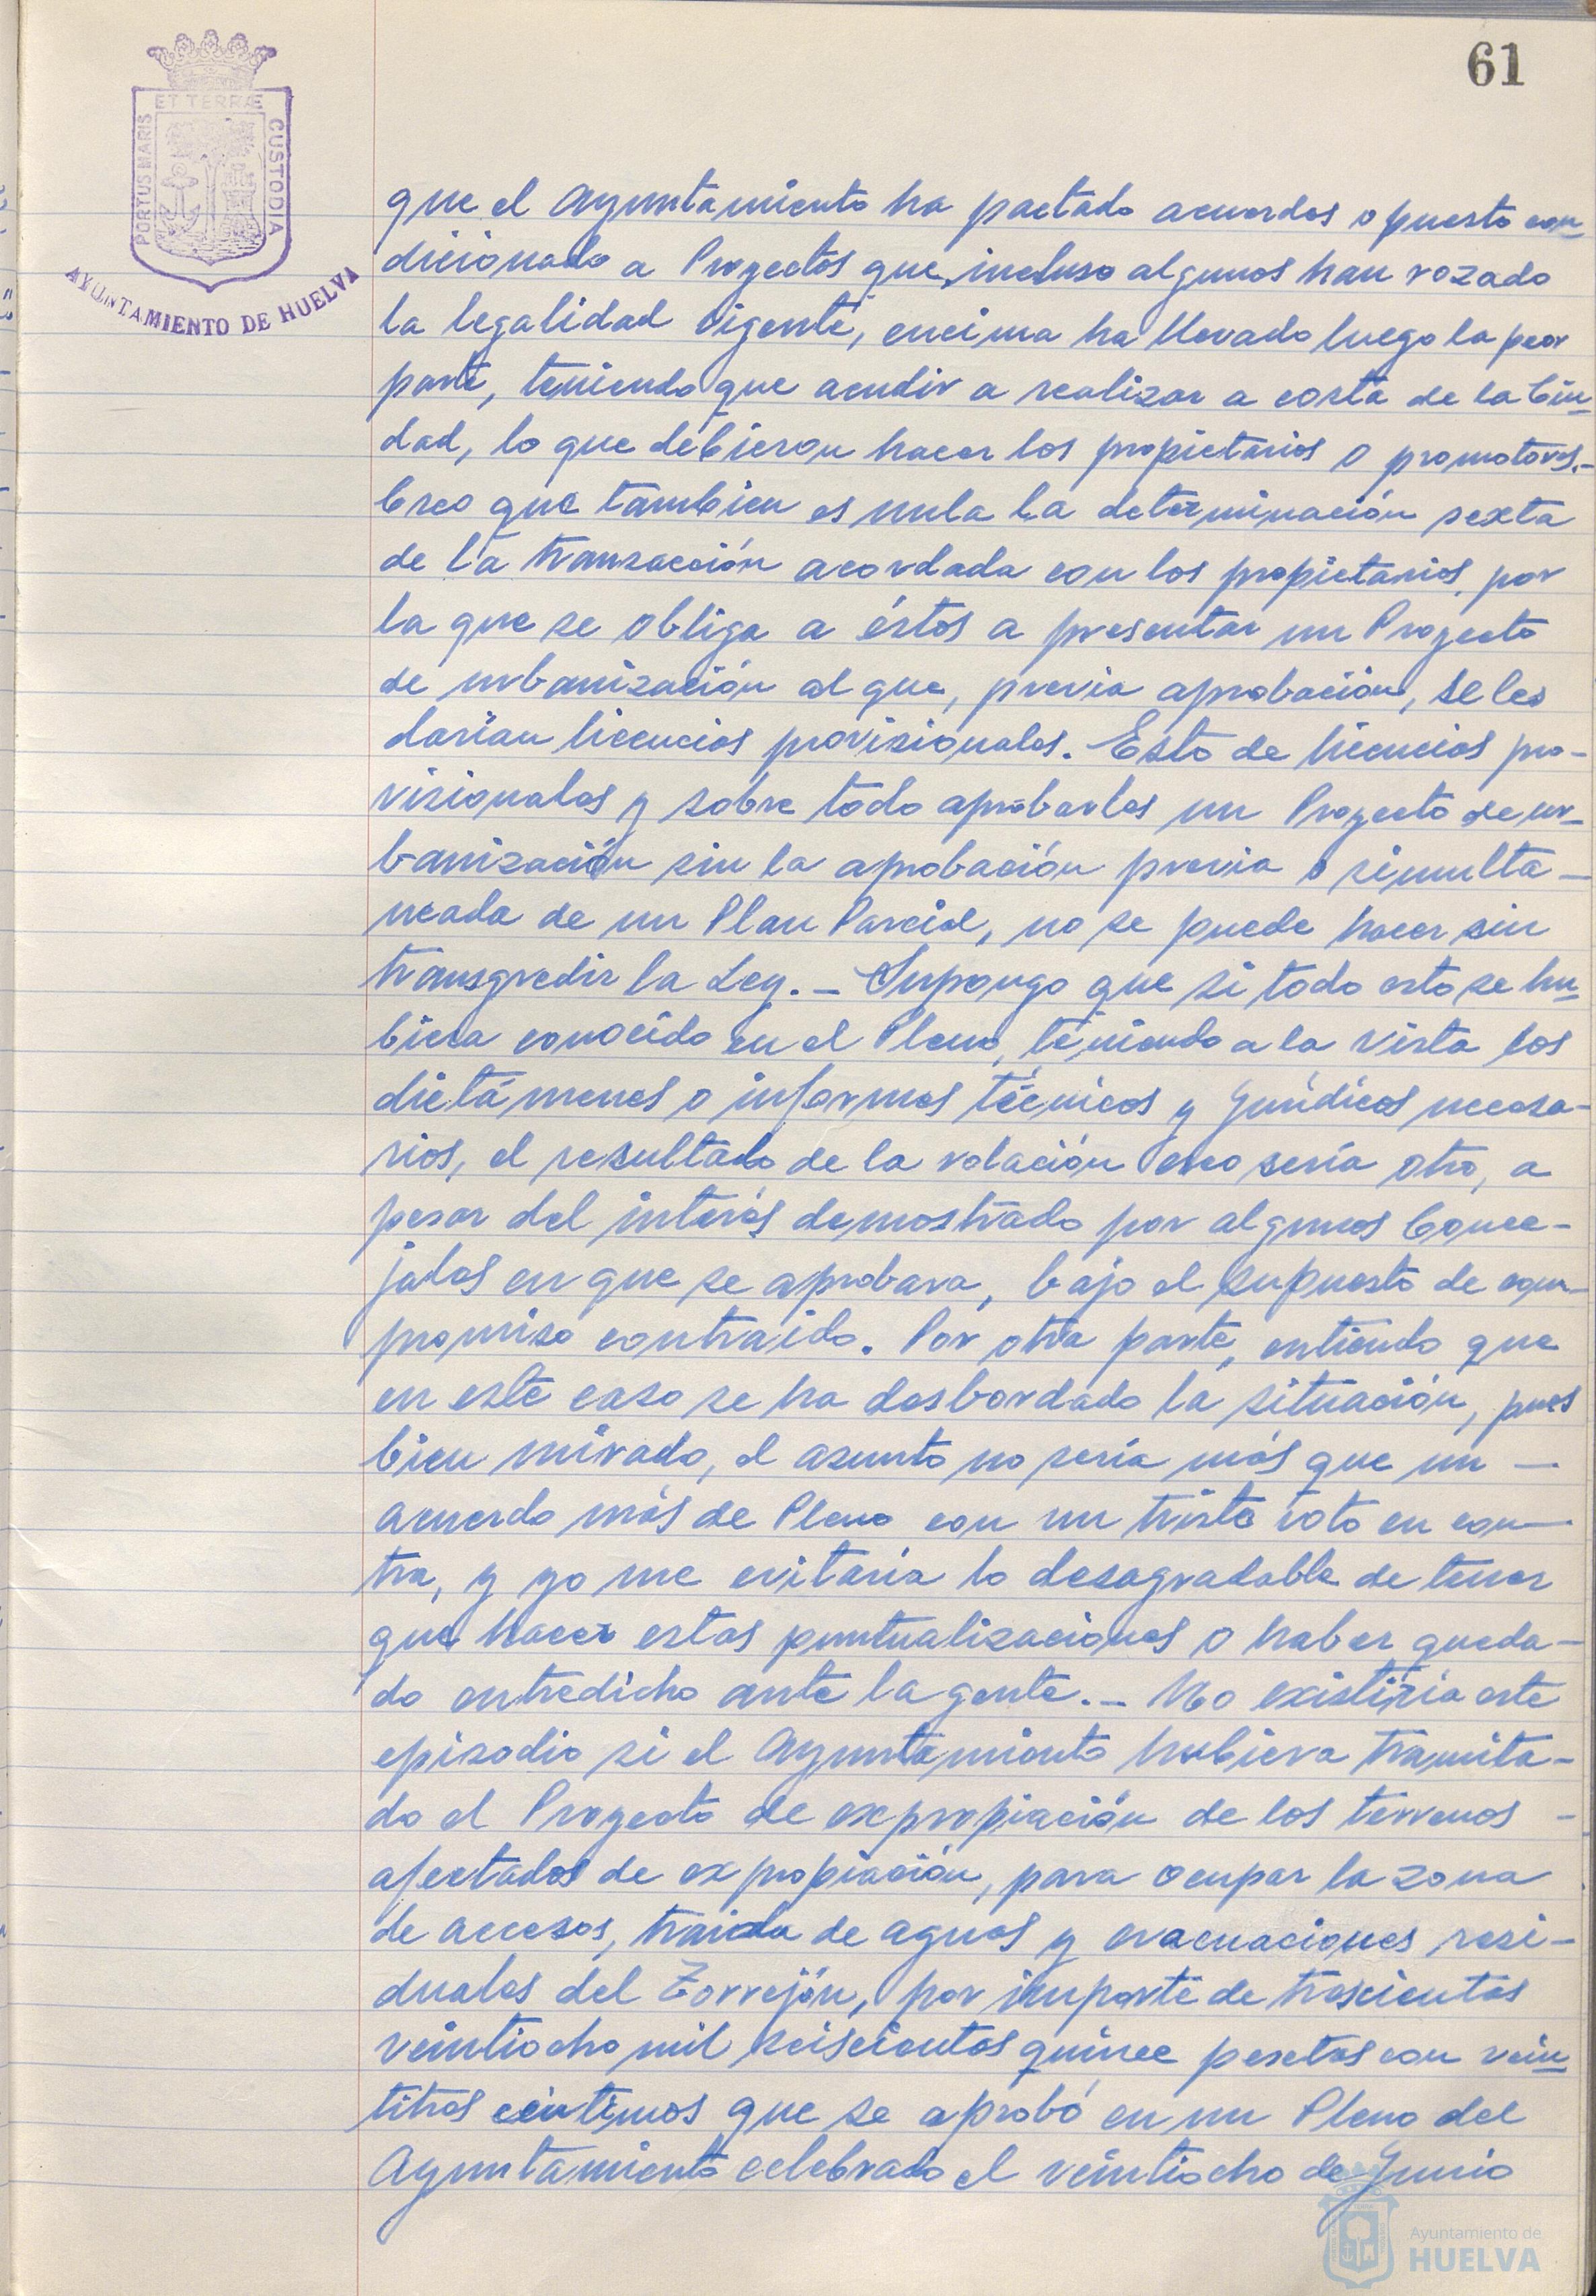 61
ET TERRÆ
PORTUS MARIS
CUSTODIA
AYUNTAMIENTO DE HUELVA
que el Ayuntamiento ha pactado acuerdos o puesto con-
dicionado a Proyectos que, incluso algunos han rozado
la legalidad vigente, encima ha llevado luego la peor
parte, teniendo que acudir a realizar a costa de la Ciu-
dad, lo que debieron hacer los propietarios o promotores.-
Creo que tambien es nula la determinación sexta
de la transacción acordada con los propietarios, por
la que se obliga a éstos a presentar un Proyecto
de urbanización al que, previa aprobación, se les
darían licencias provisionales. Esto de licencias pro-
visionales y sobre todo aprobarles un Proyecto de ur-
banización sin la aprobación previa o simulta-
neada de un Plan Parcial, no se puede hacer sin
transgredir la Ley. - Supongo que si todo esto se hu-
biera conocido en el Pleno, teniendo a la vista los
dictámenes o informes técnicos y jurídicos necesa-
rios, el resultado de la votación creo sería otro, a
pesar del interés demostrado por algunos Conce-
jales en que se aprobara, bajo el supuesto de com-
promiso contraido. Por otra parte, entiendo que
en este caso se ha desbordado la situación, pues
bien mirado, el asunto no sería más que un -
acuerdo más de Pleno con un triste voto en con-
tra, y yo me evitaría lo desagradable de tener
que hacer estas puntualizaciones o haber queda-
do entredicho ante la gente. - No existiría este
episodio si el Ayuntamiento hubiera tramita-
do el Proyecto de expropiación de los terrenos -
afectados de expropiación, para ocupar la zona
de accesos, traida de aguas y evacuaciones resi-
duales del Torrejón, por importe de trescientas
veintiocho mil seiscientas quince pesetas con vein-
titres céntimos que se aprobó en un Pleno del
Ayuntamiento celebrado el veintiocho de Junio
Ayuntamiento de
HUELVA